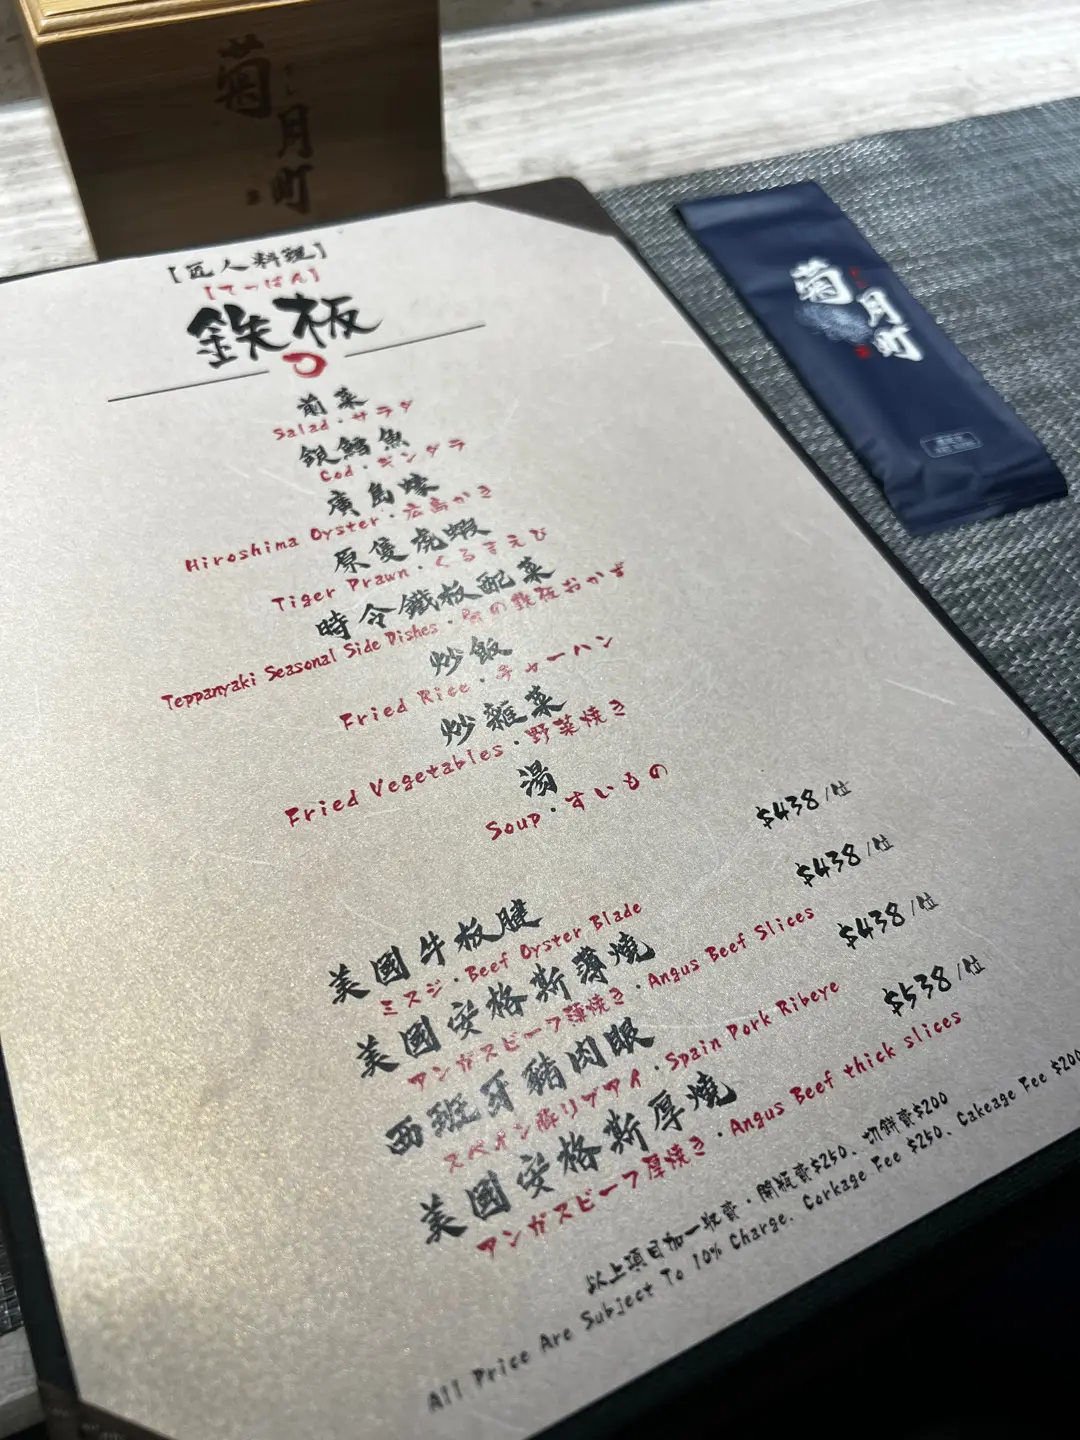 菊月町
【匠人料理】
【てっぱん】
鉄板
前菜
Salad・サラダ
銀鱈魚
Cod・ギンダラ
廣島蠔
Hiroshima Oyster・広島かき
原隻虎蝦
Tiger Prawn・くるまえび
時令鐵板配菜
Teppanyaki Seasonal Side Dishes・旬の鉄板おかず
炒飯
Fried Rice・チャーハン
炒雜菜
Fried Vegetables・野菜焼き
湯
Soup・すいもの
美國牛板腱 $438/位
ミスジ・Beef Oyster Blade
美國安格斯薄燒 $438/位
アンガスビーフ薄焼き・Angus Beef Slices
西班牙豬肉眼 $438/位
スペイン豚リブアイ・Spain Pork Ribeye
美國安格斯厚燒 $538/位
アンガスビーフ厚焼き・Angus Beef thick slices
以上項目加一收費・開瓶費$250、切餅費$200
All Price Are Subject To 10% Charge. Corkage Fee $250、Cakeage Fee $200
菊月町